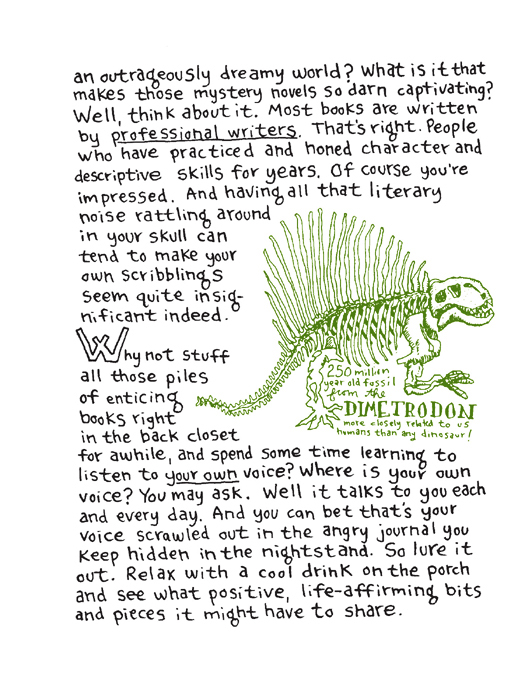 an outrageously dreamy world? What is it that
makes those mystery novels so darn captivating?
Well, think about it. Most books are written
by professional writers. That's right. People
who have practiced and honed character and
descriptive skills for years. Of course you're
impressed. And having all that literary
noise rattling around
in your skull can
tend to make your
own scribblings
seem quite insig-
nificant indeed.
Why not stuff
all those piles
of enticing
books right
in the back closet
250 million
year old fossil
from the
DIMETRODON
more closely related to us
humans than any dinosaur!
for awhile, and spend some time learning to
listen to your own voice? Where is your own
voice? You may ask. Well it talks to you each
and every day. And you can bet that's your
voice scrawled out in the angry journal you
keep hidden in the nightstand. So lure it
out. Relax with a cool drink on the porch
and see what positive, life-affirming bits
and pieces it might have to share.